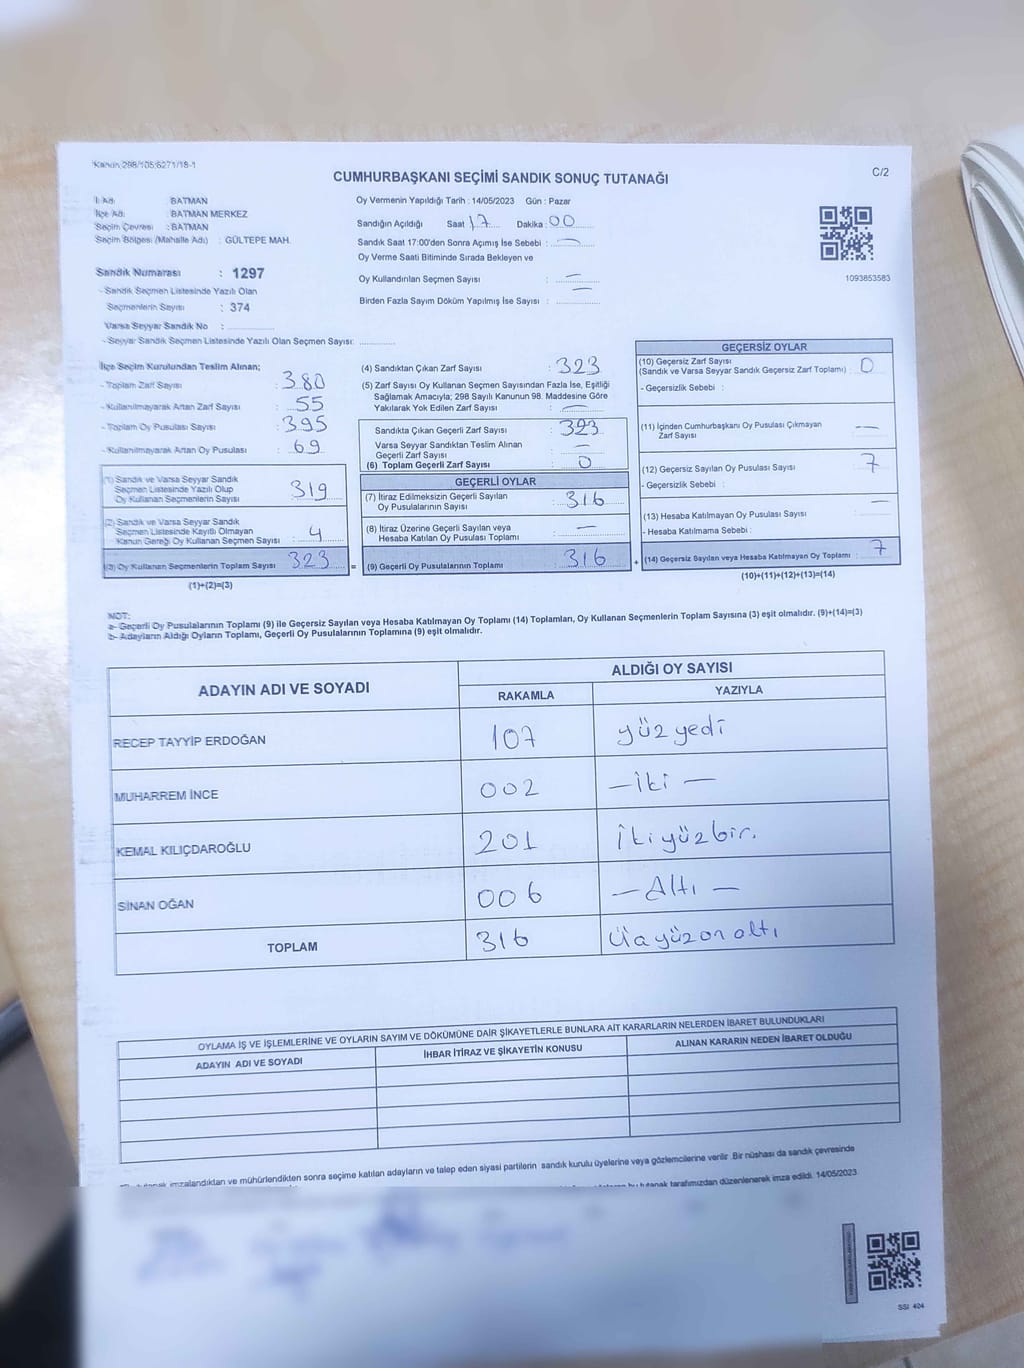 Kanun:298/105;6271/18-1
C/2
CUMHURBAŞKANI SEÇİMİ SANDIK SONUÇ TUTANAĞI
İl Adı : BATMAN
İlçe Adı : BATMAN MERKEZ
Seçim Çevresi : BATMAN
Seçim Bölgesi (Mahalle Adı) : GÜLTEPE MAH.
Sandık Numarası : 1297
- Sandık Seçmen Listesinde Yazılı Olan
Seçmenlerin Sayısı : 374
Varsa Seyyar Sandık No :
- Seyyar Sandık Seçmen Listesinde Yazılı Olan Seçmen Sayısı:
Oy Vermenin Yapıldığı Tarih : 14/05/2023 Gün : Pazar
Sandığın Açıldığı Saat 17 Dakika : 00
Sandık Saat 17:00'den Sonra Açımış İse Sebebi : —
Oy Verme Saati Bitiminde Sırada Bekleyen ve
Oy Kullandırılan Seçmen Sayısı : —
Birden Fazla Sayım Döküm Yapılmış İse Sayısı : —
1093853583
İlçe Seçim Kurulundan Teslim Alınan;
- Toplam Zarf Sayısı : 380
- Kullanılmayarak Artan Zarf Sayısı : 55
- Toplam Oy Pusulası Sayısı : 395
- Kullanılmayarak Artan Oy Pusulası : 69
(1) Sandık ve Varsa Seyyar Sandık
Seçmen Listesinde Yazılı Olup
Oy Kullanan Seçmenlerin Sayısı 319
(2) Sandık ve Varsa Seyyar Sandık
Seçmen Listesinde Kayıtlı Olmayan
Kanun Gereği Oy Kullanan Seçmen Sayısı 4
(3) Oy Kullanan Seçmenlerin Toplam Sayısı 323
(1)+(2)=(3)
=
(4) Sandıktan Çıkan Zarf Sayısı : 323
(5) Zarf Sayısı Oy Kullanan Seçmen Sayısından Fazla İse, Eşitliği
Sağlamak Amacıyla; 298 Sayılı Kanunun 98. Maddesine Göre
Yakılarak Yok Edilen Zarf Sayısı : —
Sandıkta Çıkan Geçerli Zarf Sayısı : 323
Varsa Seyyar Sandıktan Teslim Alınan
Geçerli Zarf Sayısı : —
(6) Toplam Geçerli Zarf Sayısı : 0
GEÇERLİ OYLAR
(7) İtiraz Edilmeksizin Geçerli Sayılan
Oy Pusulalarının Sayısı : 316
(8) İtiraz Üzerine Geçerli Sayılan veya
Hesaba Katılan Oy Pusulası Toplamı : —
(9) Geçerli Oy Pusulalarının Toplamı : 316
+
GEÇERSİZ OYLAR
(10) Geçersiz Zarf Sayısı
(Sandık ve Varsa Seyyar Sandık Geçersiz Zarf Toplamı) : 0
- Geçersizlik Sebebi :
(11) İçinden Cumhurbaşkanı Oy Pusulası Çıkmayan
Zarf Sayısı —
(12) Geçersiz Sayılan Oy Pusulası Sayısı : 7
- Geçersizlik Sebebi :
(13) Hesaba Katılmayan Oy Pusulası Sayısı : —
- Hesaba Katılmama Sebebi :
(14) Geçersiz Sayılan veya Hesaba Katılmayan Oy Toplamı : 7
(10)+(11)+(12)+(13)=(14)
NOT:
a- Geçerli Oy Pusulalarının Toplamı (9) ile Geçersiz Sayılan veya Hesaba Katılmayan Oy Toplamı (14) Toplamları, Oy Kullanan Seçmenlerin Toplam Sayısına (3) eşit olmalıdır. (9)+(14)=(3)
b- Adayların Aldığı Oyların Toplamı, Geçerli Oy Pusulalarının Toplamına (9) eşit olmalıdır.
ADAYIN ADI VE SOYADI ALDIĞI OY SAYISI
RAKAMLA YAZIYLA
RECEP TAYYİP ERDOĞAN 107 yüz yedi
MUHARREM İNCE 002 — iki —
KEMAL KILIÇDAROĞLU 201 İki yüz bir.
SİNAN OĞAN 006 — Altı —
TOPLAM 316 Üç yüz on altı
OYLAMA İŞ VE İŞLEMLERİNE VE OYLARIN SAYIM VE DÖKÜMÜNE DAİR ŞİKAYETLERLE BUNLARA AİT KARARLARIN NELERDEN İBARET BULUNDUKLARI
ADAYIN ADI VE SOYADI İHBAR İTİRAZ VE ŞİKAYETİN KONUSU ALINAN KARARIN NEDEN İBARET OLDUĞU
tutanak imzalandıktan ve mühürlendikten sonra seçime katılan adayların ve talep eden siyasi partilerin sandık kurulu üyelerine veya gözlemcilerine verilir. Bir nüshası da sandık çevresinde
bu tutanak tarafımızdan düzenlenerek imza edildi. 14/05/2023
SSI 404